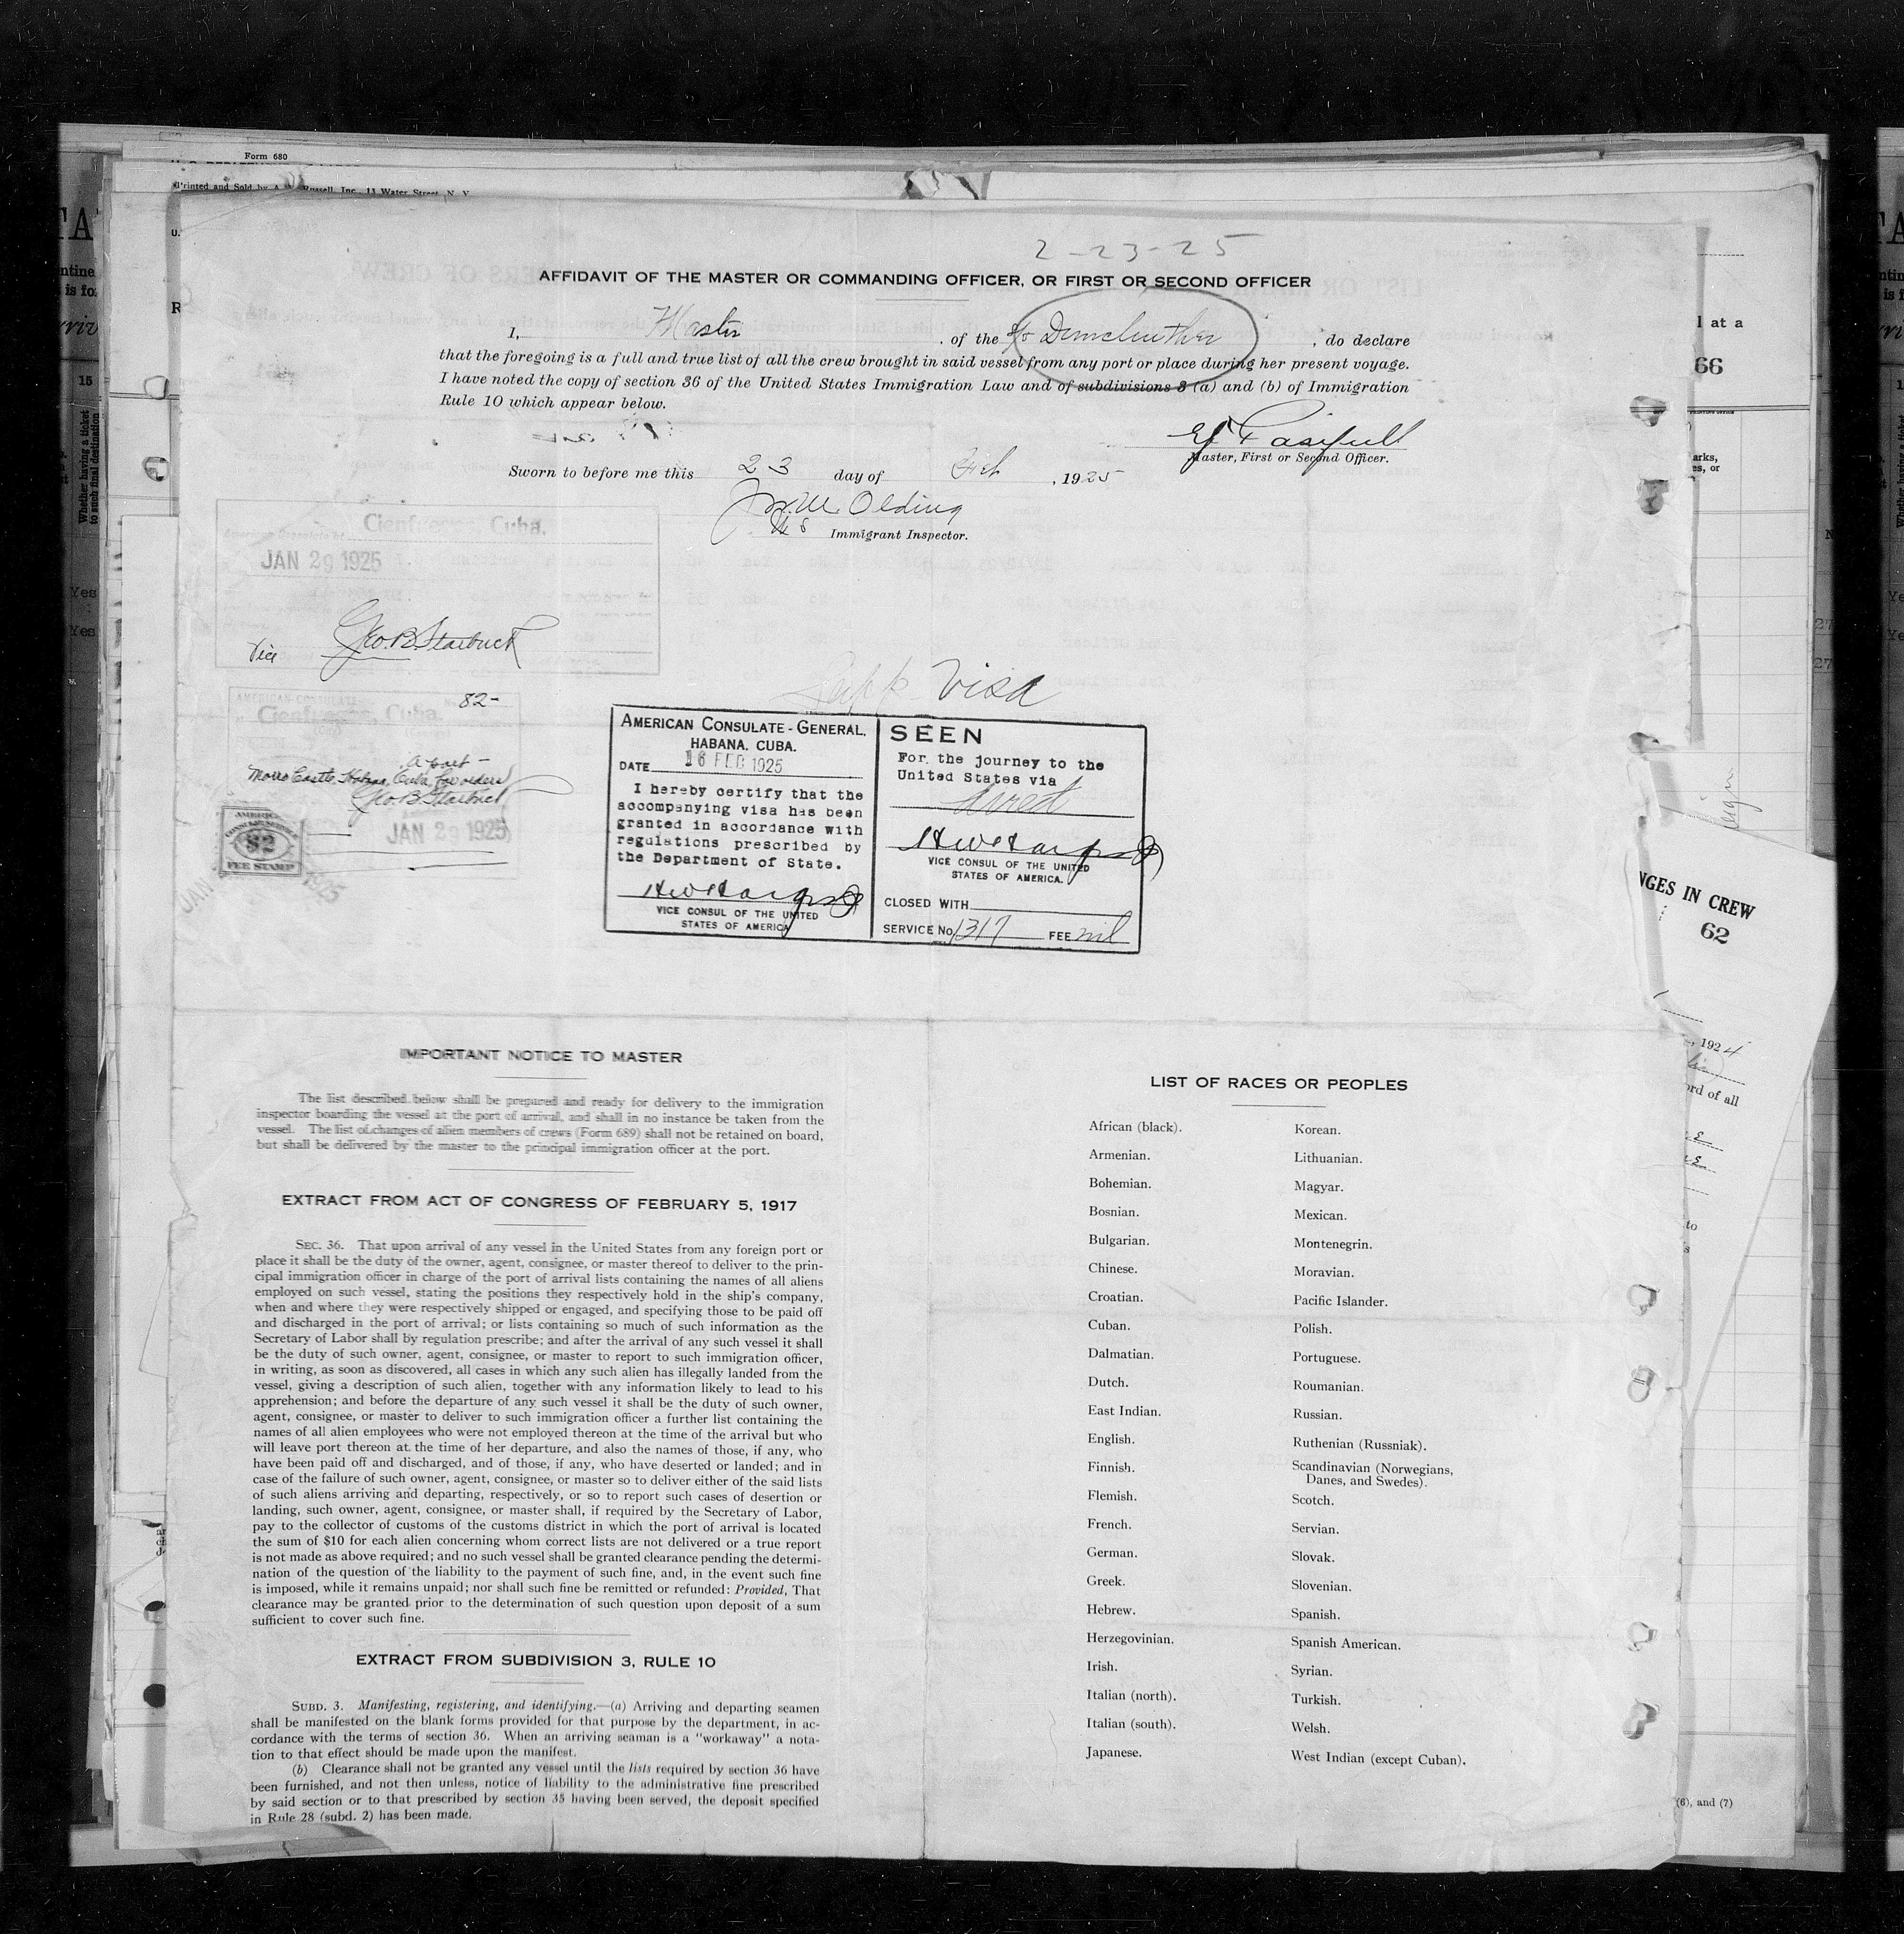 Form 680
Printed and Sold by A Russell, Inc., 11 Water Street, N. Y.
2-23-25
AFFIDAVIT OF THE MASTER OR COMMANDING OFFICER, OR FIRST OR SECOND OFFICER
I, Master , of the S/S , do declare
that the foregoing is a full and true list of all the crew brought in said vessel from any port or place during her present voyage.
I have noted the copy of section 36 of the United States Immigration Law and of subdivisions 3 (a) and (b) of Immigration
Rule 10 which appear below.
Master, First or Second Officer.
Sworn to before me this 23 day of Feb , 1925
Olding
Immigrant Inspector.
Cienfuegos, Cuba.
JAN 29 1925
Vice Geo. B. Starbuck
AMERICAN CONSULATE
82-
Cienfuegos, Cuba.
a port -
Morro Castle, Habana, Cuba, for orders
Geo B. Starbuck
JAN 29 1925
AMERICAN
CONSULAR SERVICE
$2
FEE STAMP
JAN 1925
Visa
AMERICAN CONSULATE-GENERAL,
HABANA, CUBA.
DATE 16 FEB 1925
I hereby certify that the
accompanying visa has been
granted in accordance with
regulations prescribed by
the Department of State.
VICE CONSUL OF THE UNITED
STATES OF AMERICA
SEEN
For the journey to the
United States via
direct
VICE CONSUL OF THE UNITED
STATES OF AMERICA.
CLOSED WITH
SERVICE No. 1317 FEE nil
IMPORTANT NOTICE TO MASTER
The list described below shall be prepared and ready for delivery to the immigration
inspector boarding the vessel at the port of arrival, and shall in no instance be taken from the
vessel. The list of changes of alien members of crews (Form 689) shall not be retained on board,
but shall be delivered by the master to the principal immigration officer at the port.
EXTRACT FROM ACT OF CONGRESS OF FEBRUARY 5, 1917
SEC. 36. That upon arrival of any vessel in the United States from any foreign port or
place it shall be the duty of the owner, agent, consignee, or master thereof to deliver to the prin-
cipal immigration officer in charge of the port of arrival lists containing the names of all aliens
employed on such vessel, stating the positions they respectively hold in the ship's company,
when and where they were respectively shipped or engaged, and specifying those to be paid off
and discharged in the port of arrival; or lists containing so much of such information as the
Secretary of Labor shall by regulation prescribe; and after the arrival of any such vessel it shall
be the duty of such owner, agent, consignee, or master to report to such immigration officer,
in writing, as soon as discovered, all cases in which any such alien has illegally landed from the
vessel, giving a description of such alien, together with any information likely to lead to his
apprehension; and before the departure of any such vessel it shall be the duty of such owner,
agent, consignee, or master to deliver to such immigration officer a further list containing the
names of all alien employees who were not employed thereon at the time of the arrival but who
will leave port thereon at the time of her departure, and also the names of those, if any, who
have been paid off and discharged, and of those, if any, who have deserted or landed; and in
case of the failure of such owner, agent, consignee, or master so to deliver either of the said lists
of such aliens arriving and departing, respectively, or so to report such cases of desertion or
landing, such owner, agent, consignee, or master shall, if required by the Secretary of Labor,
pay to the collector of customs of the customs district in which the port of arrival is located
the sum of $10 for each alien concerning whom correct lists are not delivered or a true report
is not made as above required; and no such vessel shall be granted clearance pending the determi-
nation of the question of the liability to the payment of such fine, and, in the event such fine
is imposed, while it remains unpaid; nor shall such fine be remitted or refunded: Provided, That
clearance may be granted prior to the determination of such question upon deposit of a sum
sufficient to cover such fine.
EXTRACT FROM SUBDIVISION 3, RULE 10
SUBD. 3. Manifesting, registering, and identifying.—(a) Arriving and departing seamen
shall be manifested on the blank forms provided for that purpose by the department, in ac-
cordance with the terms of section 36. When an arriving seaman is a "workaway" a nota-
tion to that effect should be made upon the manifest.
(b) Clearance shall not be granted any vessel until the lists required by section 36 have
been furnished, and not then unless, notice of liability to the administrative fine prescribed
by said section or to that prescribed by section 35 having been served, the deposit specified
in Rule 28 (subd. 2) has been made.
LIST OF RACES OR PEOPLES
African (black).
Armenian.
Bohemian.
Bosnian.
Bulgarian.
Chinese.
Croatian.
Cuban.
Dalmatian.
Dutch.
East Indian.
English.
Finnish.
Flemish.
French.
German.
Greek.
Hebrew.
Herzegovinian.
Irish.
Italian (north).
Italian (south).
Japanese.
Korean.
Lithuanian.
Magyar.
Mexican.
Montenegrin.
Moravian.
Pacific Islander.
Polish.
Portuguese.
Roumanian.
Russian.
Ruthenian (Russniak).
Scandinavian (Norwegians,
Danes, and Swedes).
Scotch.
Servian.
Slovak.
Slovenian.
Spanish.
Spanish American.
Syrian.
Turkish.
Welsh.
West Indian (except Cuban).
l at a
66
NGES IN CREW
62
, 1924
ord of all
to
(6), and (7)
15
Whether having a ticket
to such final destination
Yes
Yes